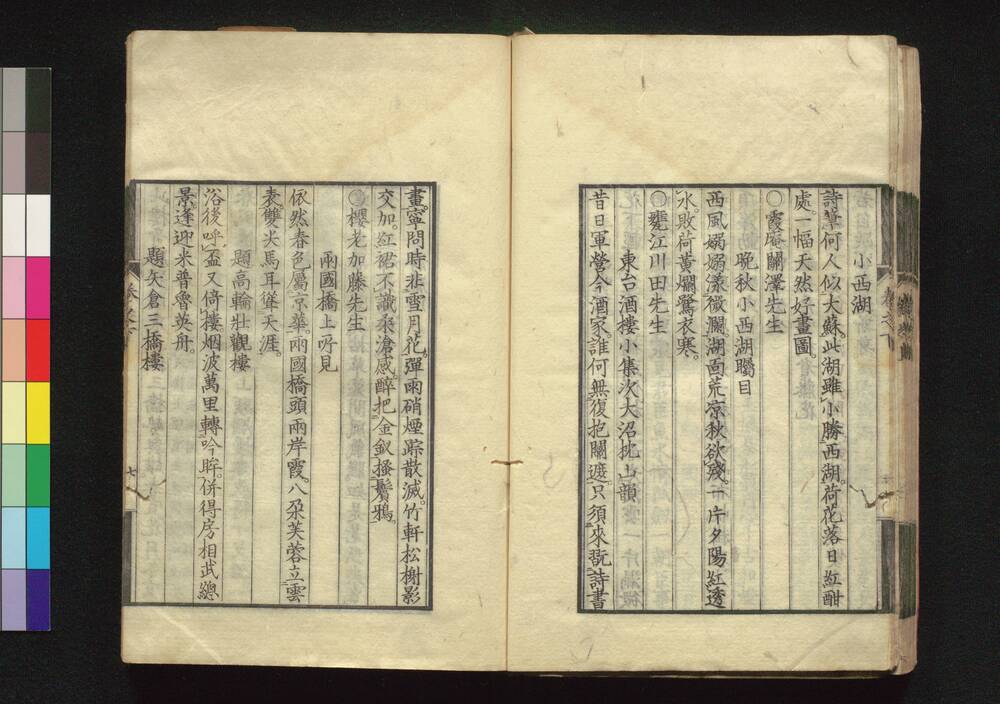 小西湖
詩筆何人似大蘇。此湖雖小勝西湖。荷花落日紅酣
處一幅天然好畫圖
〇霞庵關澤先生
晩秋小西湖矚目
西風嫋嫋漾微瀾湖面荒凉秋欲殘。一片夕陽紅透
水。敗荷黃爛鷺衣寒。
甕江川田先生
東台酒樓小集次大沼枕山韻
昔日軍營今酒家誰何無復抱關遮。只須來翫詩書
畫。寧問時非雪月花彈雨硝煙踪散滅。竹軒松榭影
交加。紅裙不識桑滄感醉把金釵搔鬢鴉。
櫻老加藤先生
兩國橋上所見
依然春色屬京華。兩國橋頭兩岸霞。八朶芙蓉立雲
表。雙尖馬耳聳天涯。
題高輪壯觀樓
浴後呼盃又倚樓烟波萬里轉吟眸。併得房相武總
景逢迎米普魯英舟。
題矢倉三橋樓
七